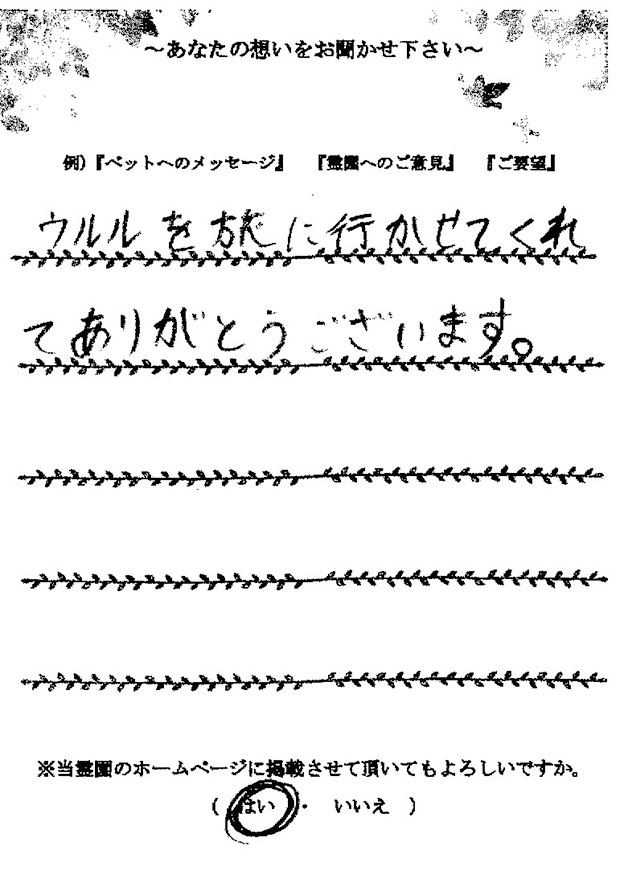 ～あなたの想いをお聞かせ下さい～
例）『ペットへのメッセージ』　『霊園へのご意見』　『ご要望』
ウルルを旅に行かせてくれ
てありがとうございます。
※当霊園のホームページに掲載させて頂いてもよろしいですか。
（　はい　・　いいえ　）